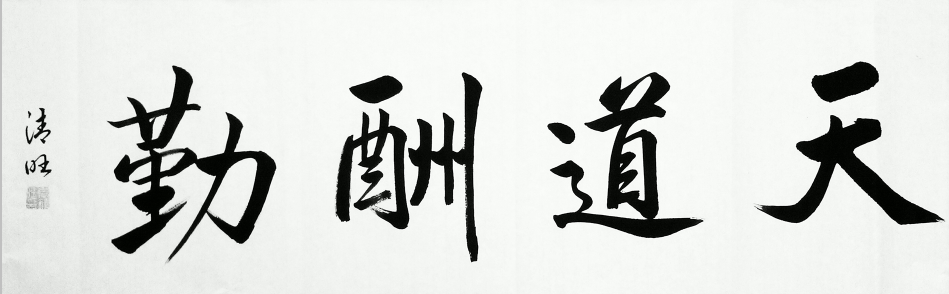 天道酬勤
清旺